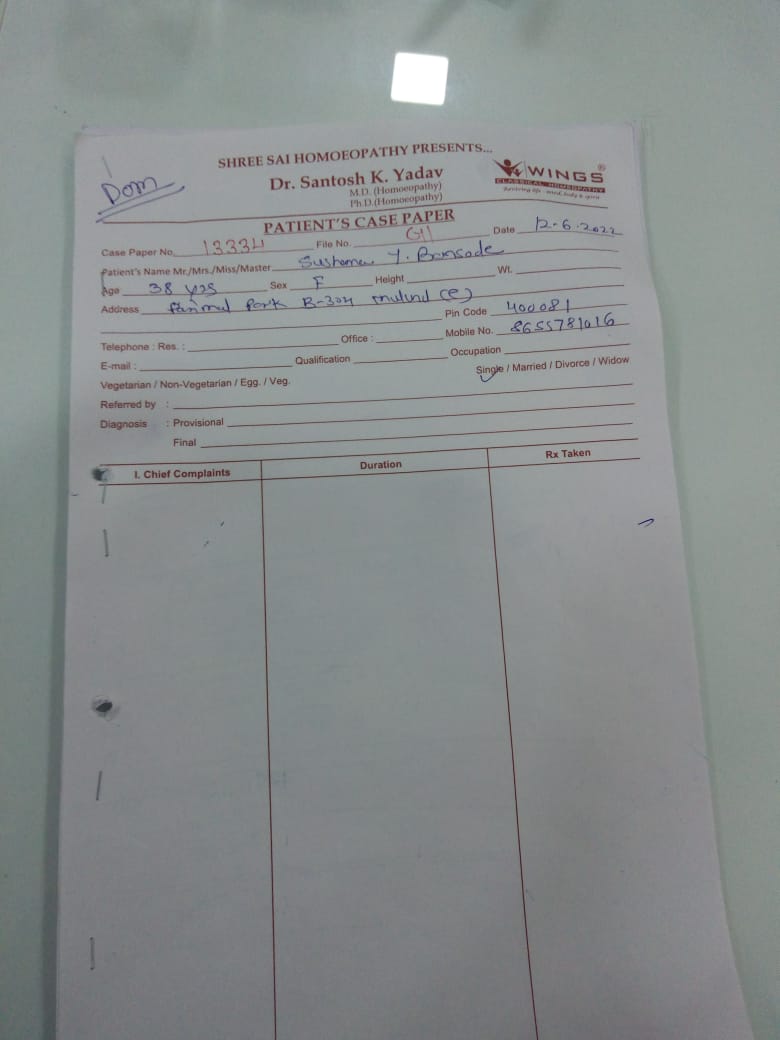 SHREE SAI HOMOEOPATHY PRESENTS...
Dom
Dr. Santosh K. Yadav
M.D. (Homoeopathy)
Ph.D.(Homoeopathy)
WINGS®
CLASSICAL HOMEOPATHY
Reviving life - mind, body & spirit
PATIENT'S CASE PAPER
Case Paper No. 13334 File No. G11 Date 12-6-2022
Patient's Name Mr./Mrs./Miss/Master Sushama Y. Bansode
Age 38 yrs Sex F Height Wt.
Address Park B-304 mulund (E)
Pin Code 400081
Telephone : Res. : Office : Mobile No. 8655781016
E-mail : Qualification Occupation
Vegetarian / Non-Vegetarian / Egg. / Veg. Single / Married / Divorce / Widow
Referred by :
Diagnosis : Provisional
Final
I. Chief Complaints Duration Rx Taken